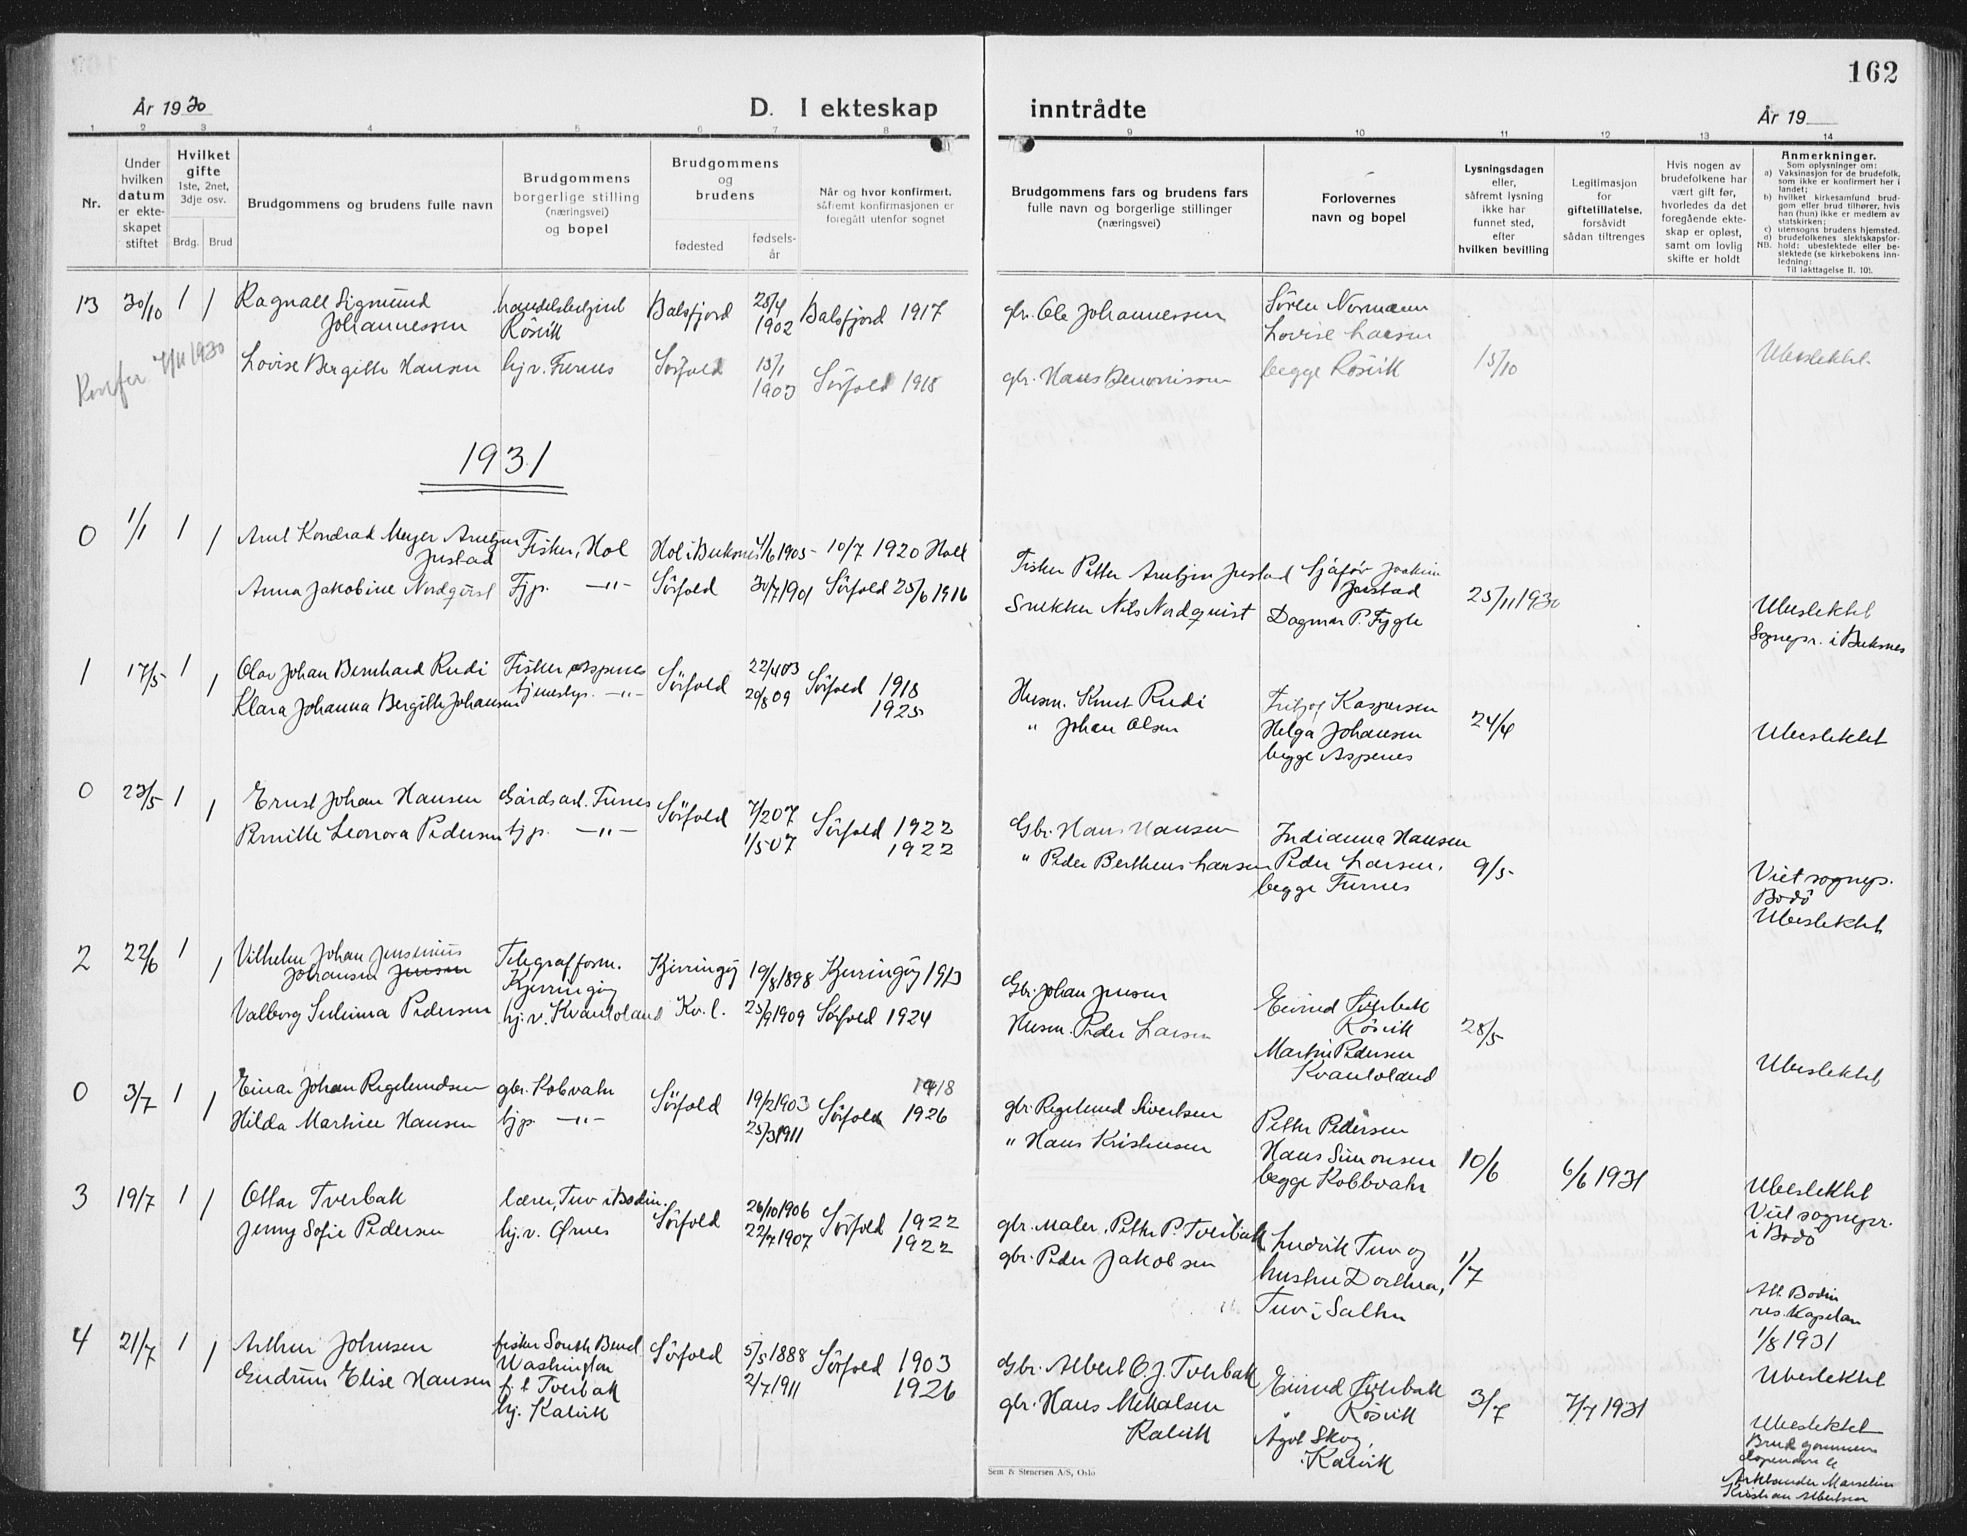 162
År 1930
D. I ekteskap inntrådte
År 19
1 2 3 4 5 6 7 8 9 10 11 12 13 14
Nr.
Under hvilken datum er ekteskapet stiftet
Hvilket gifte 1ste, 2net, 3dje osv.
Brdg. Brud
Brudgommens og brudens fulle navn
Brudgommens borgerlige stilling (næringsvei) og bopel
Brudgommens og brudens
fødested
fødsels-år
Når og hvor konfirmert, såfremt konfirmasjonen er foregått utenfor sognet
Brudgommens fars og brudens fars fulle navn og borgerlige stillinger (næringsvei)
Forlovernes navn og bopel
Lysningsdagen eller, såfremt lysning ikke har funnet sted, efter hvilken bevilling
Legitimasjon for giftetillatelse, forsåvidt sådan tiltrenges
Hvis nogen av brudefolkene har vært gift før, hvorledes da det foregående ekteskap er opløst, samt om lovlig skifte er holdt
Anmerkninger.
Som oplysninger om:
a) Vaksinasjon for de brudefolk, som ikke er konfirmert her i landet;
b) hvilket kirkesamfund brudgom eller brud tilhører, hvis han (hun) ikke er medlem av statskirken;
c) utensogns brudens hjemsted.
d) brudefolkenes slektskapsforhold: ubeslektede eller beslektede (se kirkebokens innledning:
NB.
Til iakttagelse II. 10).
13 30/10 1 1 Ragnall Sigmund Johannessen Røsvik Balsfjord 28/4 1902 Balsfjord 1917 gbr. Ole Johannessen Sören Normann
Lovise Bergitte Hansen hj.v. Furnes Sörfold 13/1 1903 Sörfold 1918 gbr. Hans Benonissen Lovise Larsen begge Rösvik 15/10 Ubeslektet
7/11 1930
1931
0 1/1 1 1 Arnt Kondrad Meyer Arntzen Justad Fisker, Hol Hol i Buksnes 4/6 1905 - 10/7 1920 Holl Fisker Petter Arntzen Justad Sjåför Joakim Justad
Anna Jakobine Nordquist Tjp. -"- Sörfold 30/7 1901 Sörfold 25/6 1916 Snekker Nils Nordquist Dagmar P. Fygle 25/11 1930 Ubeslektet Sognepr. i Buksnes
1 17/5 1 1 Olav Johan Bernhard Rudi Fisker Aspenes Sörfold 22/4 03 Sörfold 1918 Husm. Knut Rudi Fritjof Kaspersen
Klara Johanna Bergitte Johansen tjenestep. -"- 20/8 09 1925 " Johan Olsen Helga Johansen begge Aspenes 24/4 Ubeslektet
0 23/5 1 1 Ernst Johan Hansen Gårdsarb. Furnes Sörfold 7/2 07 Sörfold 1922 Gbr. Hans Hansen Indianna Hansen
Pernille Leonora Pedersen tjp. -"- 1/5 07 1922 " Peder Bertheus Larsen Peder Larsen, begge Furnes 9/5 Viet sognepr. Bodö Ubeslektet
2 22/6 1 1 Vilhelm Johan Jensenius Johansen Jensen Telegrafform. Kjerringöy Kjerringöy 19/8 1898 Kjerringöy 1913 Gbr. Johan Jensen Eivind Tverbak Rösvik
Valborg Pedersen hj.v. Kvantoland Kv.l. 23/9 1909 Sörfold 1924 Husm. Peder Larsen Martin Pedersen Kvantoland 28/5 Ubeslektet
0 3/7 1 1 Einar Johan Regelundsen gbr. Kobvatn Sörfold 19/2 1903 Sörfold 1918 gbr. Regelund Sivertsen Petter Pedersen
Hilda Martine Hansen tjp. -"- 25/3 1911 1926 " Hans Kristensen Hans Simonsen begge Kobbvatn 10/6 6/6 1931 Ubeslektet Viet sognepr. i Bodö
3 19/7 1 1 Ottar Tverbak lærer, Tuv i Bodin Sörfold 26/10 1906 Sörfold 1922 gbr. maler, Petter P. Tverbakk Ludvik Tuv og
Jenny Sofie Pedersen hj.v. Ørnes 22/7 1907 1922 gbr. Peder Jakobsen hustru Dorthea, Tuv i Salten 1/7 Att. Bodin res. kapelan 1/8 1931 Ubeslektet
4 21/7 1 1 Arthur Johnsen fisker South Bend Washington f. t Tverbak Sörfold 5/5 1888 Sörfold 1903 Gbr. Albert O. J. Tverbakk Eivind Tverbak Rösvik
Gudrun Elise Hansen hj. Kalvik 2/7 1911 1926 gbr. Hans Mikalsen Kalvik Ågot Skog, Kalvik 3/7 7/7 1931 Ubeslektet Brudgommens Kristian Albertsen
Sem & Stenersen A/S, Oslo